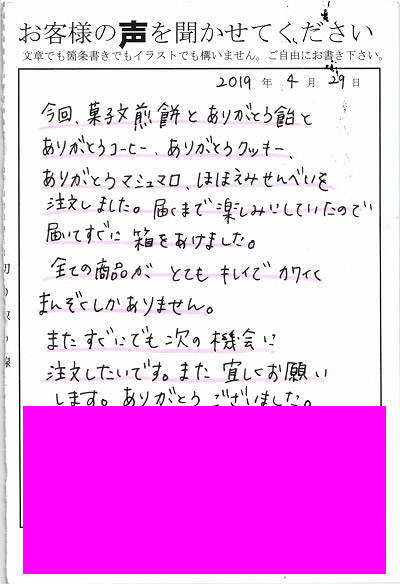 お客様の声を聞かせてください
文章でも箇条書きでもイラストでも構いません。ご自由にお書き下さい。
2019年 4月 29日
今回、菓子文煎餅とありがとう飴と
ありがとうコーヒー、ありがとうクッキー、
ありがとうマシュマロ、ほほえみせんべいを
注文しました。届くまで楽しみにしていたので
届いてすぐに箱をあけました。
全ての商品が とても キレイで カワイく
まんぞくしかありません。
またすぐにでも次の機会に
注文したいです。また 宜しくお願い
します。ありがとうございました。